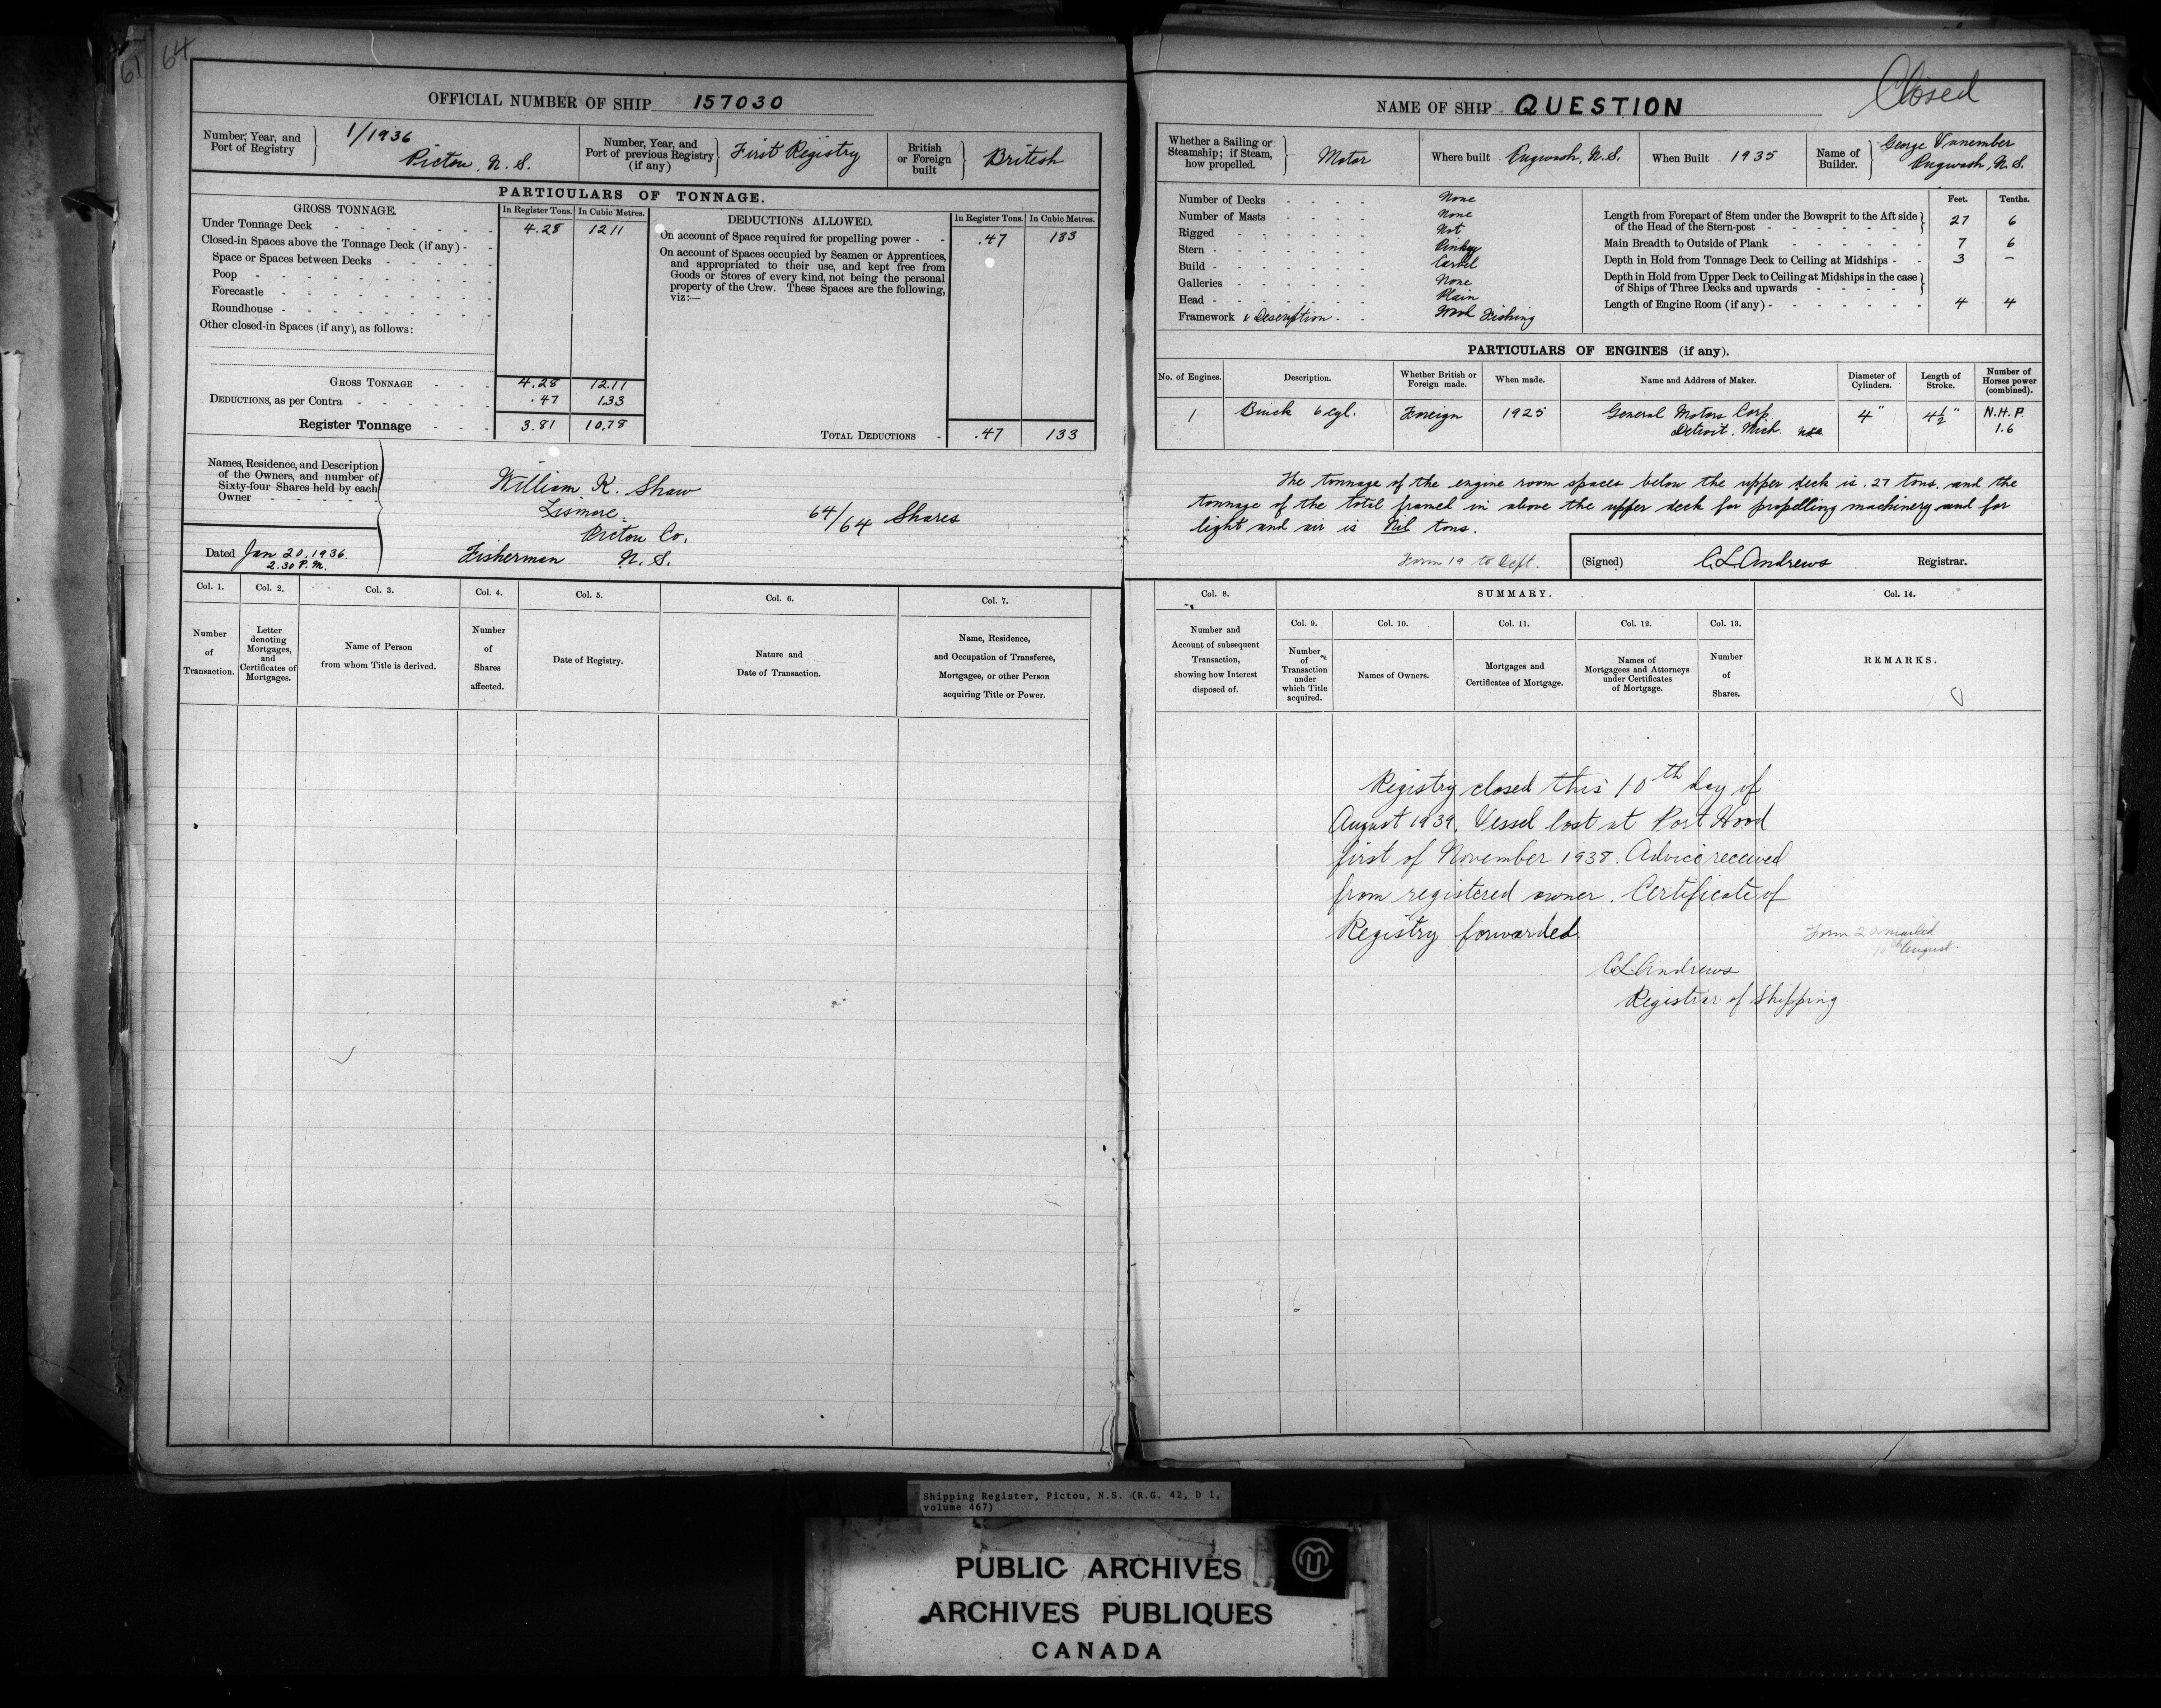 61 64
OFFICIAL NUMBER OF SHIP 157030
Number, Year, and Port of Registry 1/1936 Pictou, N. S.
Number, Year, and Port of previous Registry (if any) First Registry
British or Foreign built British
PARTICULARS OF TONNAGE.
GROSS TONNAGE. In Register Tons. In Cubic Metres.
Under Tonnage Deck 4.28 12 11
Closed-in Spaces above the Tonnage Deck (if any) -
Space or Spaces between Decks
Poop
Forecastle
Roundhouse
Other closed-in Spaces (if any), as follows:
GROSS TONNAGE 4.28 12.11
DEDUCTIONS, as per Contra .47 1.33
Register Tonnage 3.81 10.78
DEDUCTIONS ALLOWED. In Register Tons. In Cubic Metres.
On account of Space required for propelling power - .47 133
On account of Spaces occupied by Seamen or Apprentices,
and appropriated to their use, and kept free from
Goods or Stores of every kind, not being the personal
property of the Crew. These Spaces are the following,
viz:—
TOTAL DEDUCTIONS - .47 133
Names, Residence, and Description
of the Owners, and number of
Sixty-four Shares held by each
Owner
William K. Shaw
Lismore
Pictou Co.
Fisherman N. S.
64/64 Shares
Dated Jan 20, 1936.
2.30 P.M.
Col. 1. Col. 2. Col. 3. Col. 4. Col. 5. Col. 6. Col. 7.
Number of Transaction.
Letter denoting Mortgages, and Certificates of Mortgages.
Name of Person from whom Title is derived.
Number of Shares affected.
Date of Registry.
Nature and Date of Transaction.
Name, Residence, and Occupation of Transferee, Mortgagee, or other Person acquiring Title or Power.
Closed
NAME OF SHIP QUESTION
Whether a Sailing or Steamship; if Steam, how propelled. Motor
Where built Pugwash, N.S.
When Built 1935
Name of Builder. George Pugwash, N.S.
Number of Decks None
Number of Masts None
Rigged Not
Stern Pinkey
Build Carvel
Galleries None
Head Plain
Framework & Description Wood Fishing
Feet. Tenths.
Length from Forepart of Stem under the Bowsprit to the Aft side of the Head of the Stern-post 27 6
Main Breadth to Outside of Plank 7 6
Depth in Hold from Tonnage Deck to Ceiling at Midships - 3 —
Depth in Hold from Upper Deck to Ceiling at Midships in the case of Ships of Three Decks and upwards
Length of Engine Room (if any) - 4 4
PARTICULARS OF ENGINES (if any).
No. of Engines. Description. Whether British or Foreign made. When made. Name and Address of Maker. Diameter of Cylinders. Length of Stroke. Number of Horses power (combined).
1 Buick 6 cyl. Foreign 1925 General Motors Corp. Detroit, Mich. USA 4" 4½" N.H.P. 1.6
The tonnage of the engine room spaces below the upper deck is .27 tons, and the
tonnage of the total framed in above the upper deck for propelling machinery and for
light and air is Nil tons.
Form 19 to Dept.
(Signed) C.L. Andrews Registrar.
Col. 8. SUMMARY. Col. 14.
Col. 9. Col. 10. Col. 11. Col. 12. Col. 13.
Number and Account of subsequent Transaction, showing how Interest disposed of.
Number of Transaction under which Title acquired.
Names of Owners.
Mortgages and Certificates of Mortgage.
Names of Mortgagees and Attorneys under Certificates of Mortgage.
Number of Shares.
REMARKS.
Registry closed this 10th day of
August 1939. Vessel lost at Port Hood
first of November 1938. Advice received
from registered owner. Certificate of
Registry forwarded.
Form 20 mailed
10th August.
C.L. Andrews
Registrar of Shipping
Shipping Register, Pictou, N.S. (R.G. 42, D 1,
volume 467)
PUBLIC ARCHIVES
ARCHIVES PUBLIQUES
CANADA